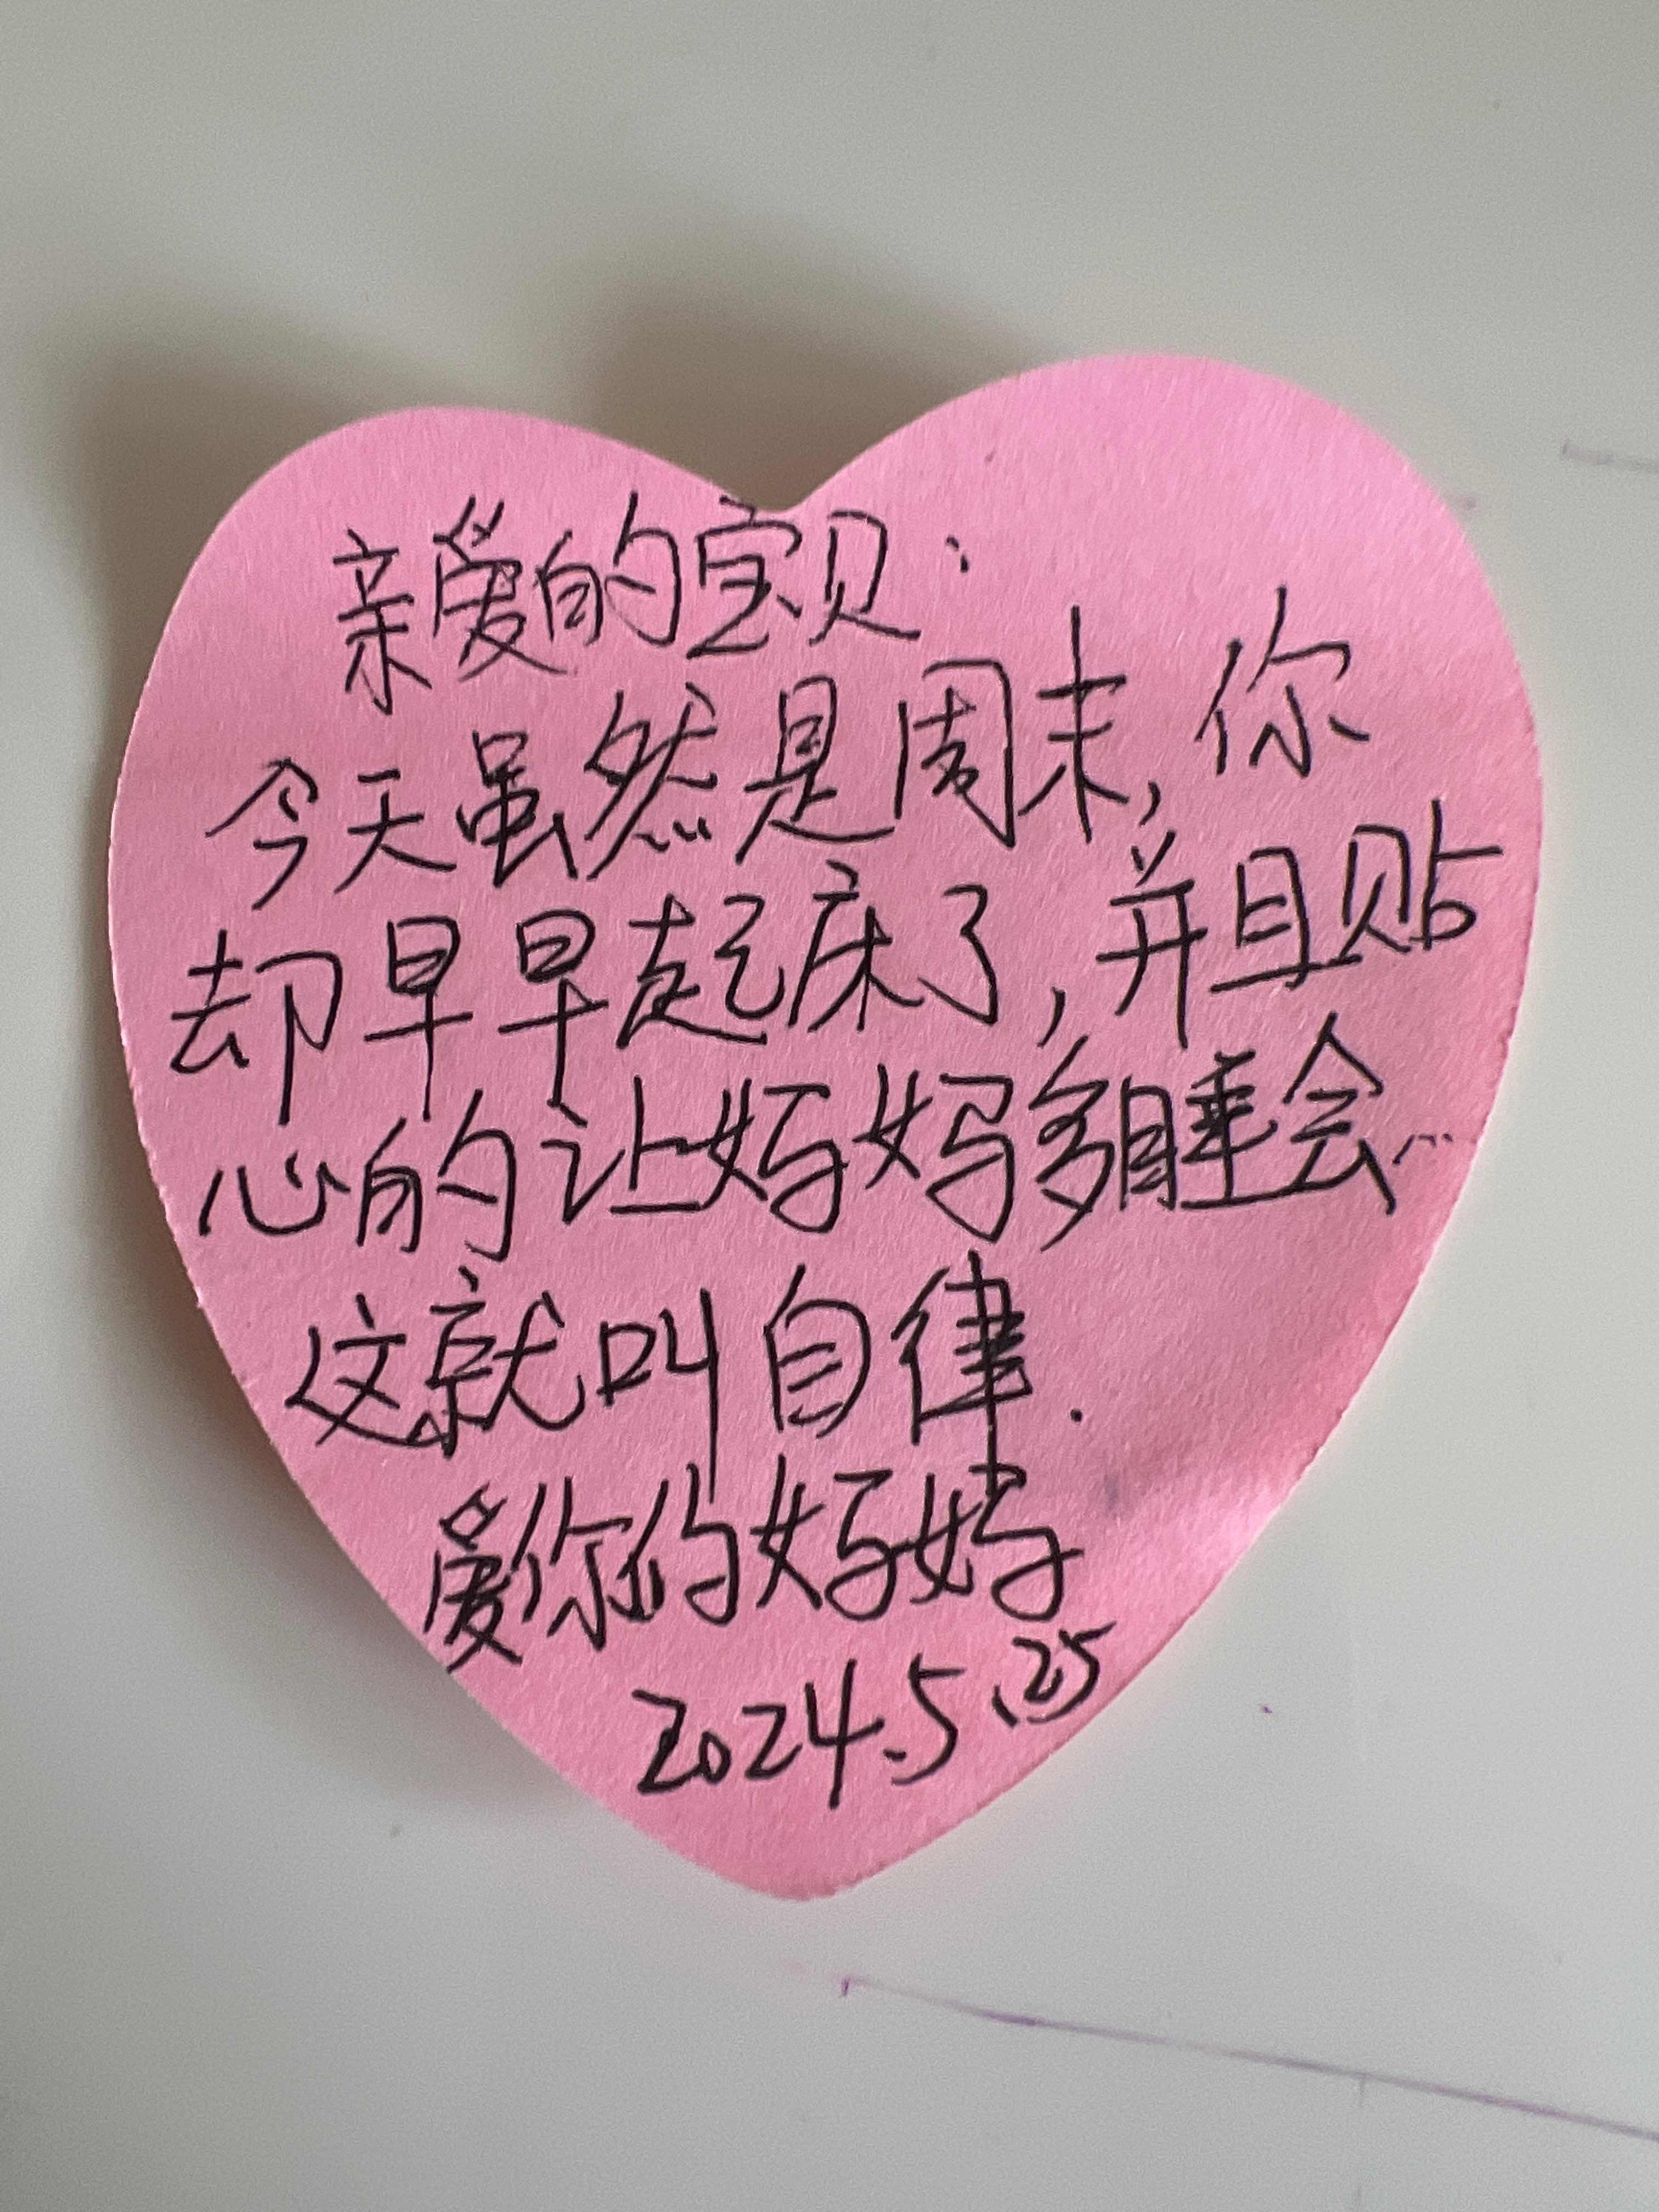 亲爱的宝贝：
今天虽然是周末，你
却早早起床了，并且贴
心的让妈妈多睡会…
这就叫自律.
爱你的妈妈
2024.5.25